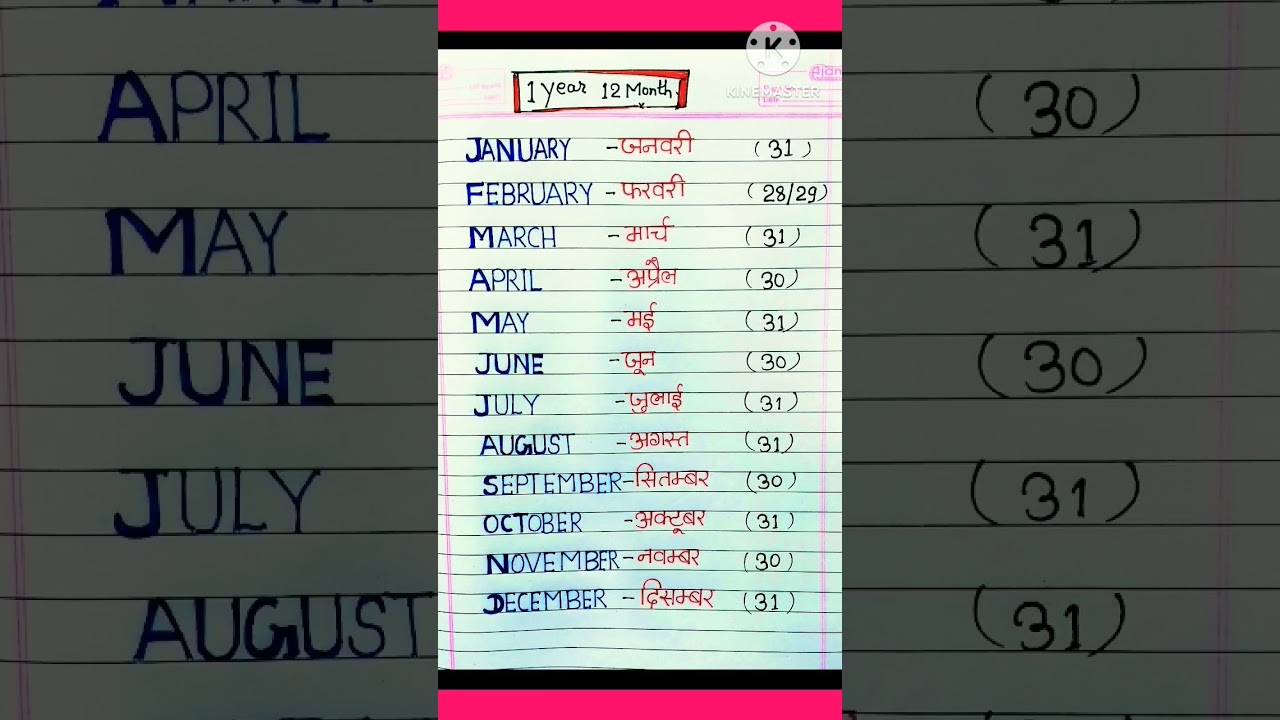 1 year 12 Month
KINEMASTER
JANUARY - जनवरी (31)
FEBRUARY - फरवरी (28/29)
MARCH - मार्च (31)
APRIL - अप्रैल (30)
MAY - मई (31)
JUNE - जून (30)
JULY - जुलाई (31)
AUGUST - अगस्त (31)
SEPTEMBER - सितम्बर (30)
OCTOBER - अक्टूबर (31)
NOVEMBER - नवम्बर (30)
DECEMBER - दिसम्बर (31)
APRIL (30)
MAY (31)
JUNE (30)
JULY (31)
AUGUST (31)